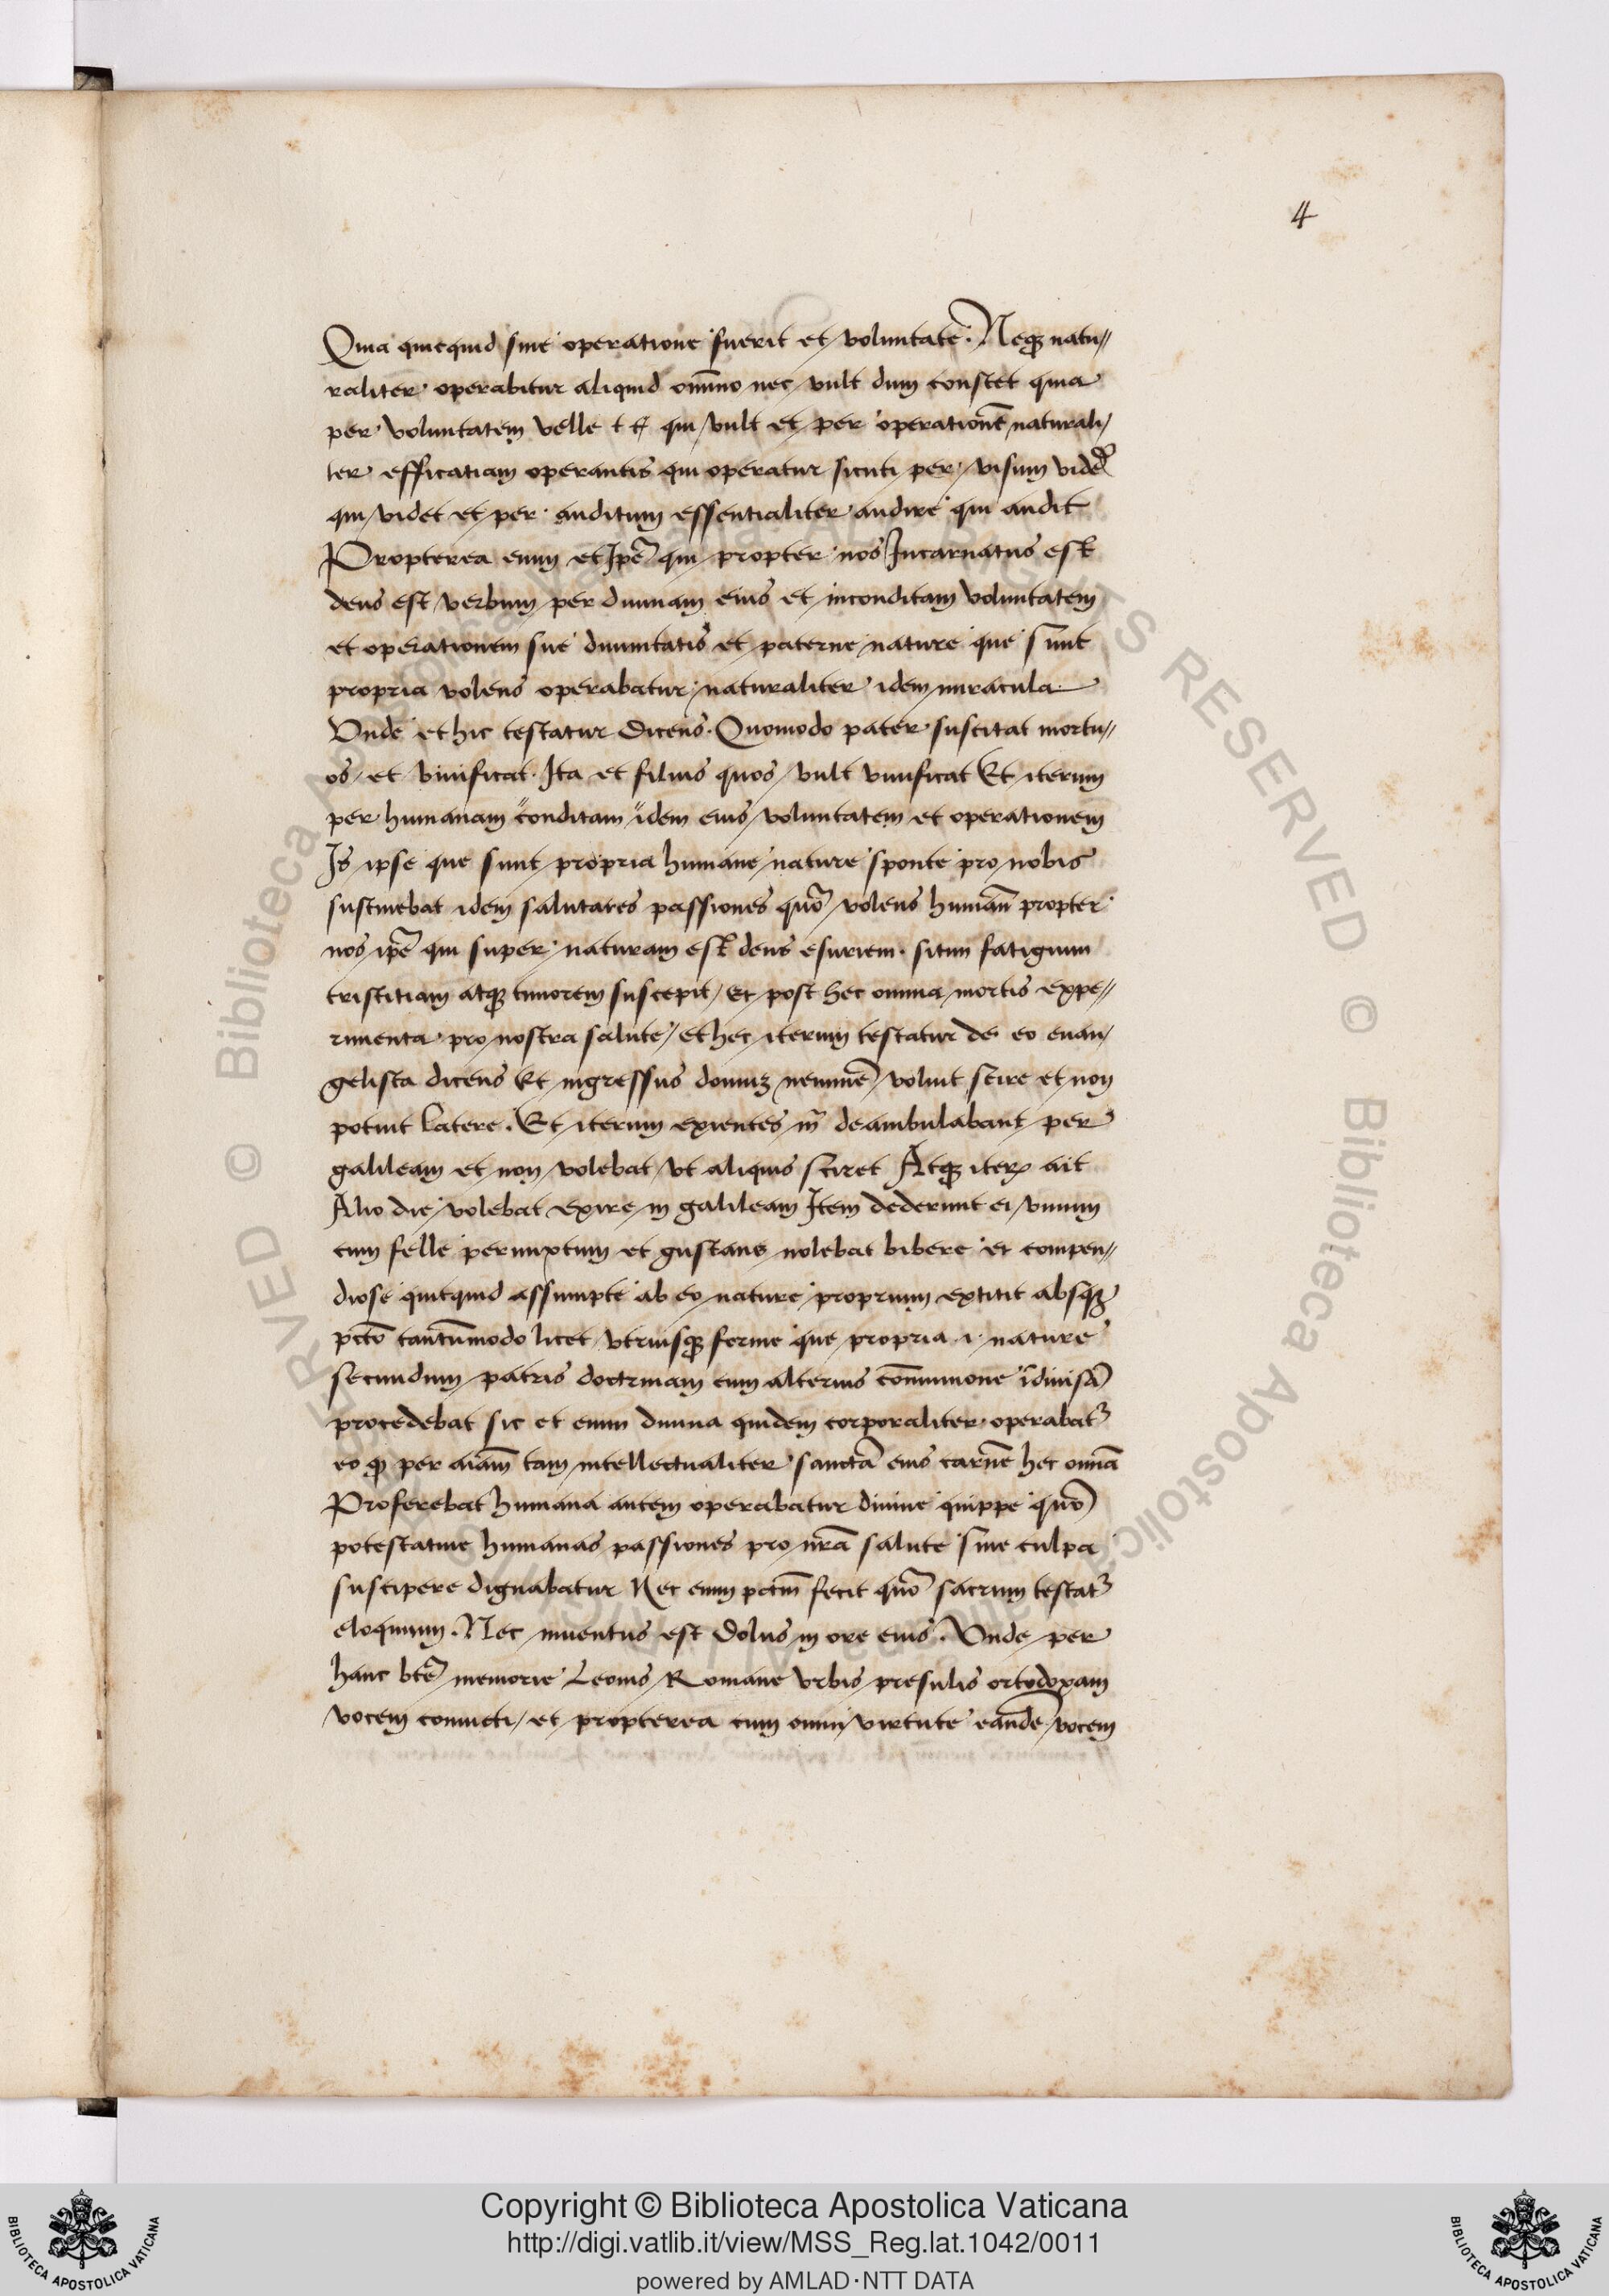 4
Quia quicquid sine operatione fuerit et voluntate. Neqꝫ natu//
raliter operabitur aliquid om̄ino nec vult dum constet quia
per voluntatem velle qui vult et per operationē naturali/
ter efficatiam operantis qui operatur sicuti per visum
qui videt et per auditum essentialiter audire qui audit
Propterea enim et Ipē qui propter nos Incarnatus est
deus est verbum per diuinam eius et inconditam voluntatem
et operationem sue diuinitatis et paterne nature que sunt
propria volens operabatur naturaliter idem miracula
Vnde et hic testatur dicens. Quomodo pater suscitat mortu//
os et viuificat. Ita et filius quos vult viuificat Et iterum
per humanam conditam idem eius voluntatem et operationem
Is ipse que sunt propria humane nature sponte pro nobis
sustinebat idem salutares passiones quō volens humān propter
nos ipē qui super naturam est deus esuriem. sitim fatigium
tristitiam atqꝫ timorem suscepit/ Et post hec omnia mortis expe//
rimenta pro nostra salute/ et hec iterum testatur de eo euan/
gelista dicens Et ingressus domuꝫ neminē voluit scire et non
potuit latere. Et iterum exientes deambulabant per
galileam et non volebat vt aliquis sciret Atqꝫ iteꝝ ait
Alio die volebat exire in galileam Item dederunt ei vinum
cum felle permixtum et gustans nolebat bibere et compen//
diose quicquid assumpte ab eo nature proprium extitit absqꝫ
pctō tantūmodo licet vtriusqꝫ forme que propria .i. nature
secundum patris doctrinam cum alterius com̄unione īdiuisā
procedebat sic et enim diuina quidem corporaliter operabat᷑
eo qꝫ per aīam̄ tam intellectualiter sanctā eius carnē hec omīa
Proferebat humana autem operabatur diuine quippe quō
potestatiue humanas passiones pro nr̄a salute sine culpa
suscipere dignabatur Nec enim pctm̄ fecit quō sacrum testat᷑
eloquium. Nec inuentus est dolus in ore eius. Vnde per
hanc btē memorie Leonis Romane vrbis presulis ortodoxam
vocem conuicti/ et propterea cum omni virtute eandē vocem
Copyright © Biblioteca Apostolica Vaticana
http://digi.vatlib.it/view/MSS_Reg.lat.1042/0011
powered by AMLAD·NTT DATA
BIBLIOTECA APOSTOLICA VATICANA
BIBLIOTECA APOSTOLICA VATICANA